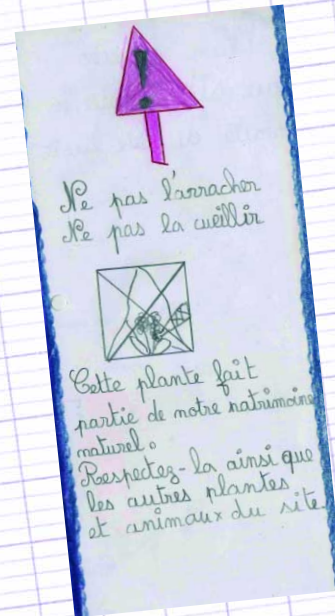 !
Ne pas l'arracher
Ne pas la cueillir
Cette plante fait
partie de notre patrimoine
naturel.
Respectez-la ainsi que
les autres plantes
et animaux du site